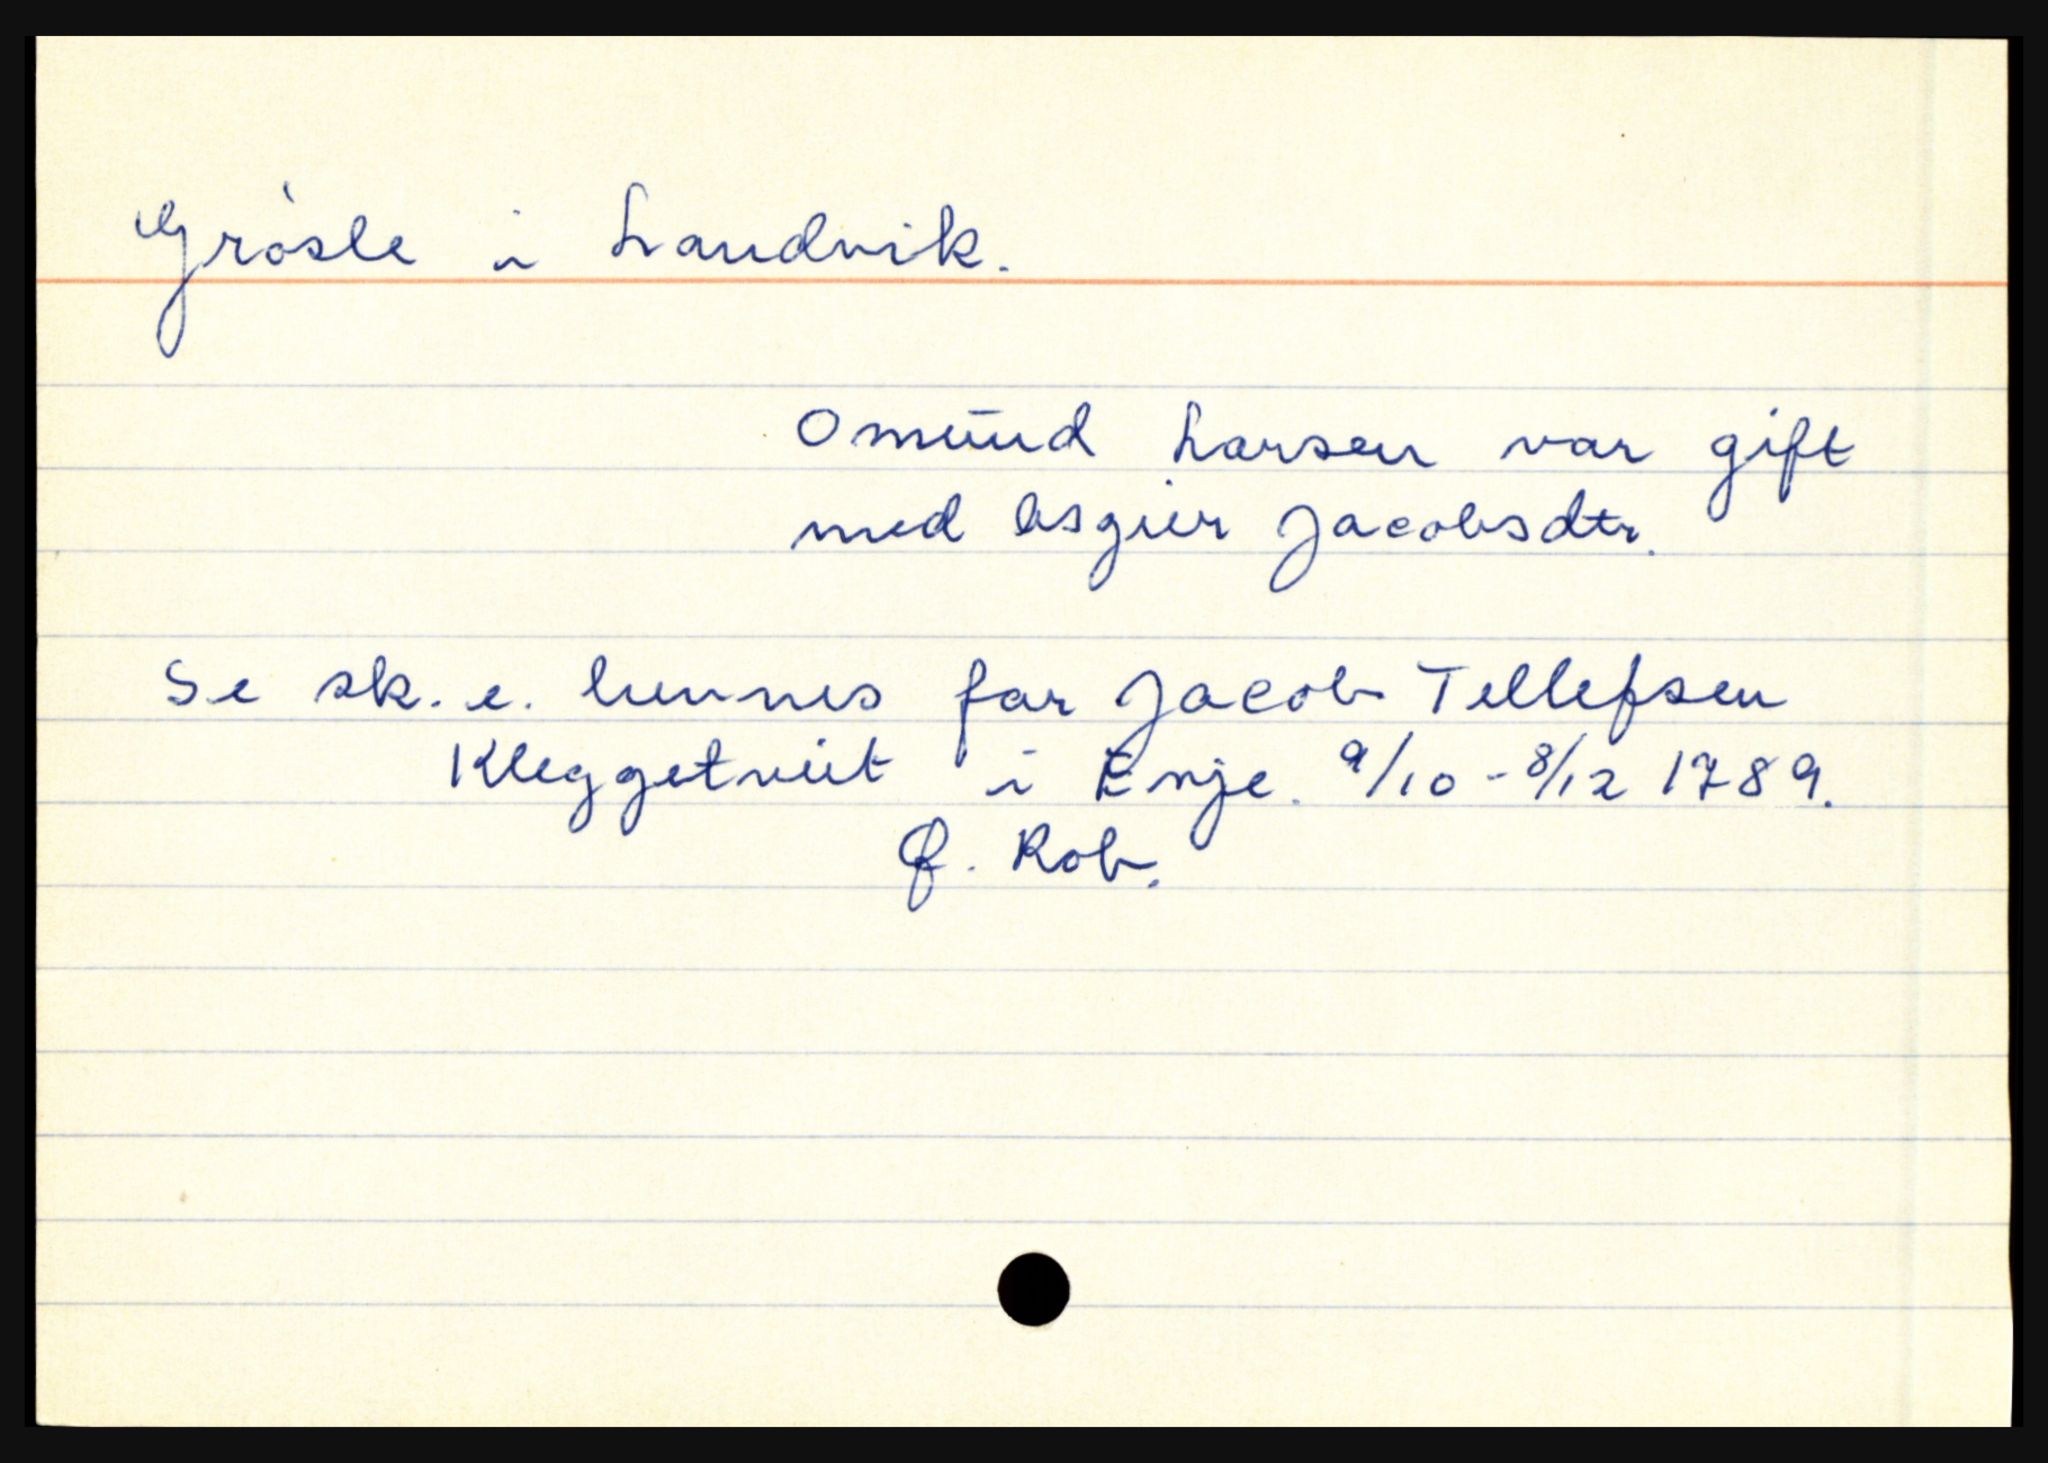 Gròsle i Landvik.
Omund Larsen var gift
med Asgier Jacobsdtr.
Se sk. e. hennes far Jacob Tellefsen
Kleggetveit i Evje. 9/10 - 8/12 1789.
Rob.